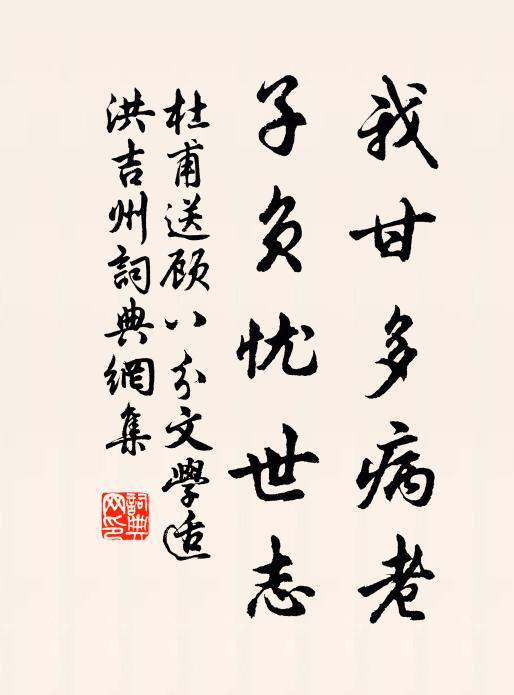 我甘多病老
子负忧世志
杜甫送顾八分文學适
洪吉州詞典網集
詞典
网印